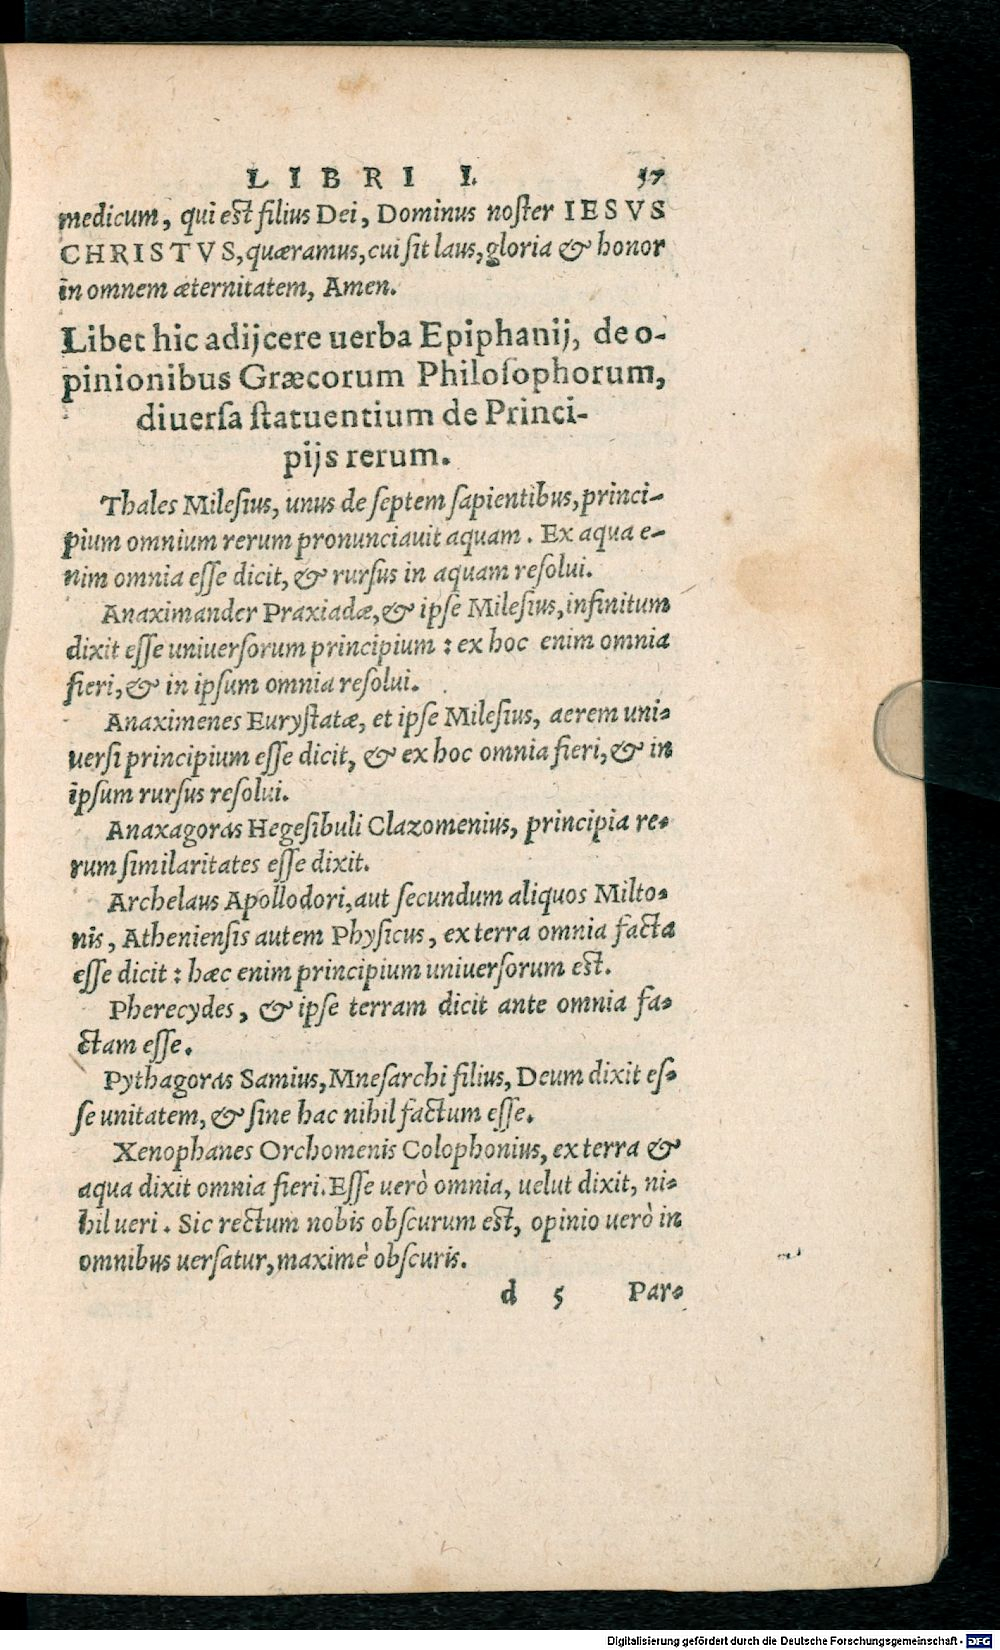 LIBRI I. 57
medicum, qui est filius Dei, Dominus noster IESVS
CHRISTVS, quæramus, cui sit laus, gloria & honor
in omnem æternitatem, Amen.
Libet hic adijcere uerba Epiphanij, de o-
pinionibus Græcorum Philosophorum,
diuersa statuentium de Princi-
pijs rerum.
Thales Milesius, unus de septem sapientibus, princi-
pium omnium rerum pronunciauit aquam. Ex aqua e-
nim omnia esse dicit, & rursus in aquam resolui.
Anaximander Praxiadæ, & ipse Milesius, infinitum
dixit esse uniuersorum principium: ex hoc enim omnia
fieri, & in ipsum omnia resolui.
Anaximenes Eurystatæ, et ipse Milesius, aerem uni-
uersi principium esse dicit, & ex hoc omnia fieri, & in
ipsum rursus resolui.
Anaxagoras Hegesibuli Clazomenius, principia re-
rum similaritates esse dixit.
Archelaus Apollodori, aut secundum aliquos Milto-
nis, Atheniensis autem Physicus, ex terra omnia facta
esse dicit: hæc enim principium uniuersorum est.
Pherecydes, & ipse terram dicit ante omnia fa-
ctam esse.
Pythagoras Samius, Mnesarchi filius, Deum dixit es-
se unitatem, & sine hac nihil factum esse.
Xenophanes Orchomenis Colophonius, ex terra &
aqua dixit omnia fieri. Esse uerò omnia, uelut dixit, ni-
hil ueri. Sic rectum nobis obscurum est, opinio uerò in
omnibus uersatur, maximè obscuris.
d 5 Par-
Digitalisierung gefördert durch die Deutsche Forschungsgemeinschaft - DFG